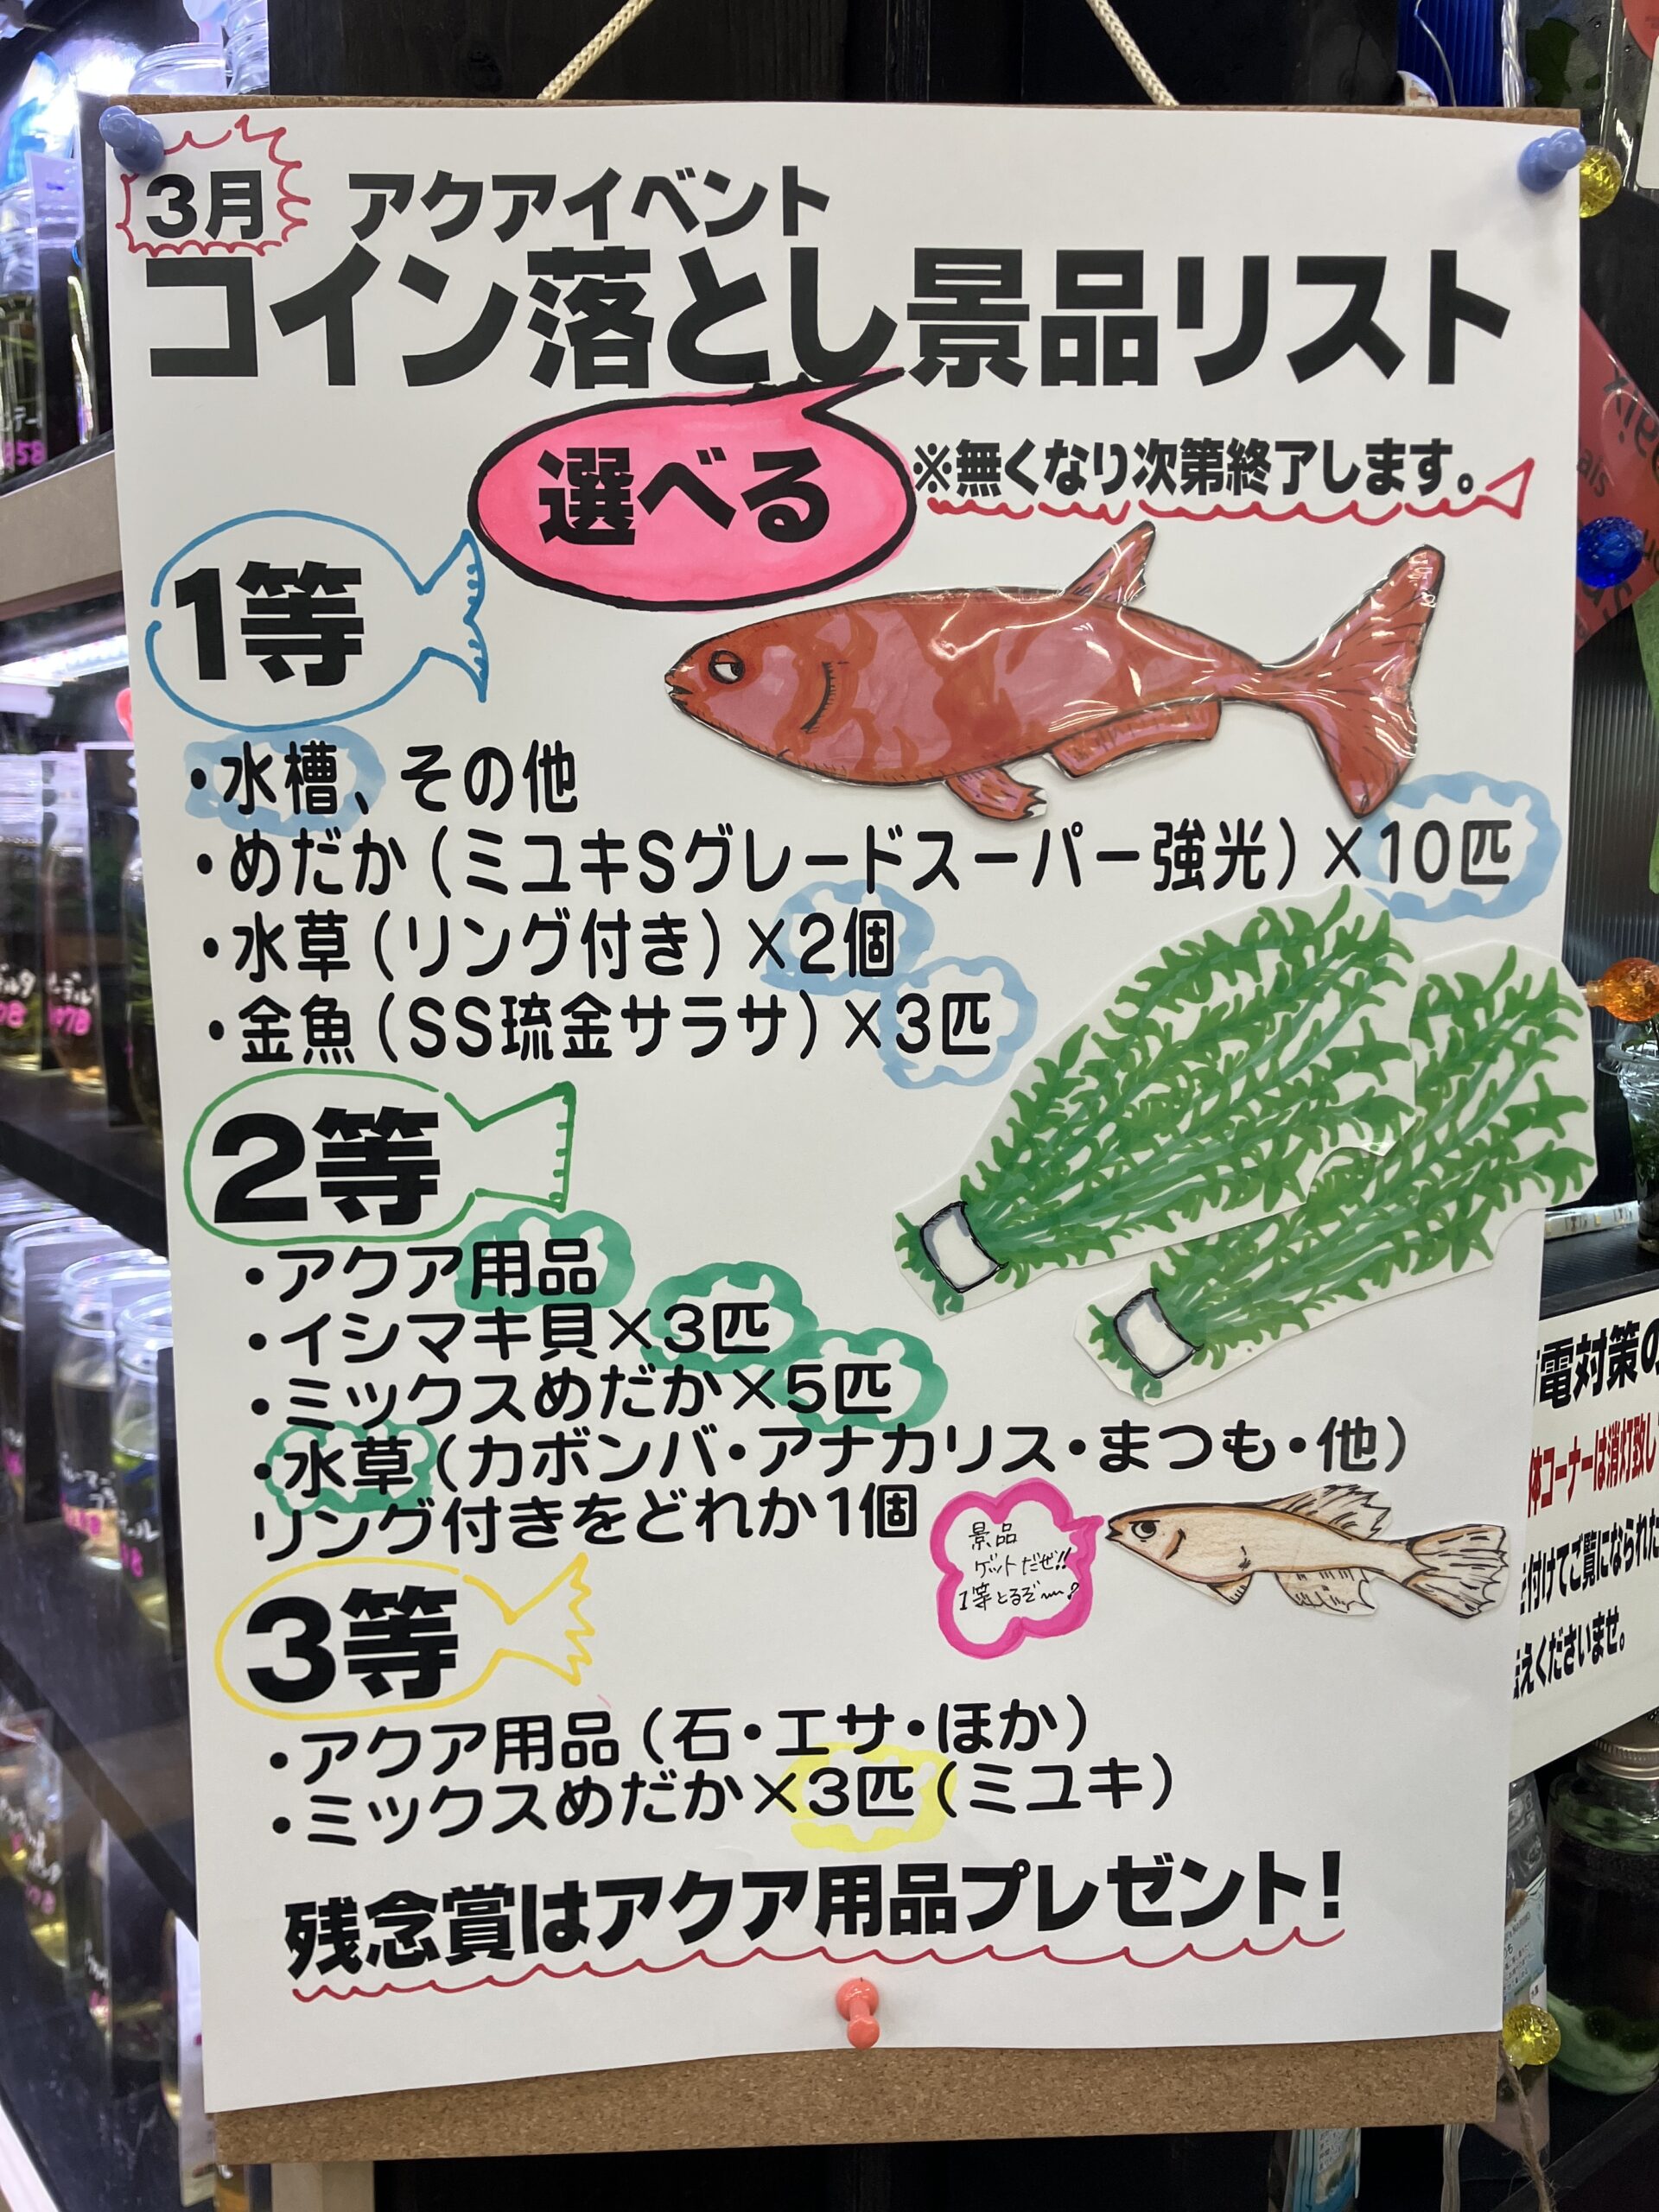 3月
アクアイベント
コイン落とし景品リスト
選べる
※無くなり次第終了します。
1等
・水槽、その他
・めだか（ミユキSグレードスーパー強光）×10匹
・水草（リング付き）×2個
・金魚（SS琉金サラサ）×3匹
2等
・アクア用品
・イシマキ貝×3匹
・ミックスめだか×5匹
・水草（カボンバ・アナカリス・まつも・他）
リング付きをどれか1個
景品
ゲットだぜ!!
1等とるぞ〜〜?
3等
・アクア用品（石・エサ・ほか）
・ミックスめだか×3匹（ミユキ）
残念賞はアクア用品プレゼント！
電対策の
コーナーは消灯致し
付けてご覧になられた
えくださいませ。